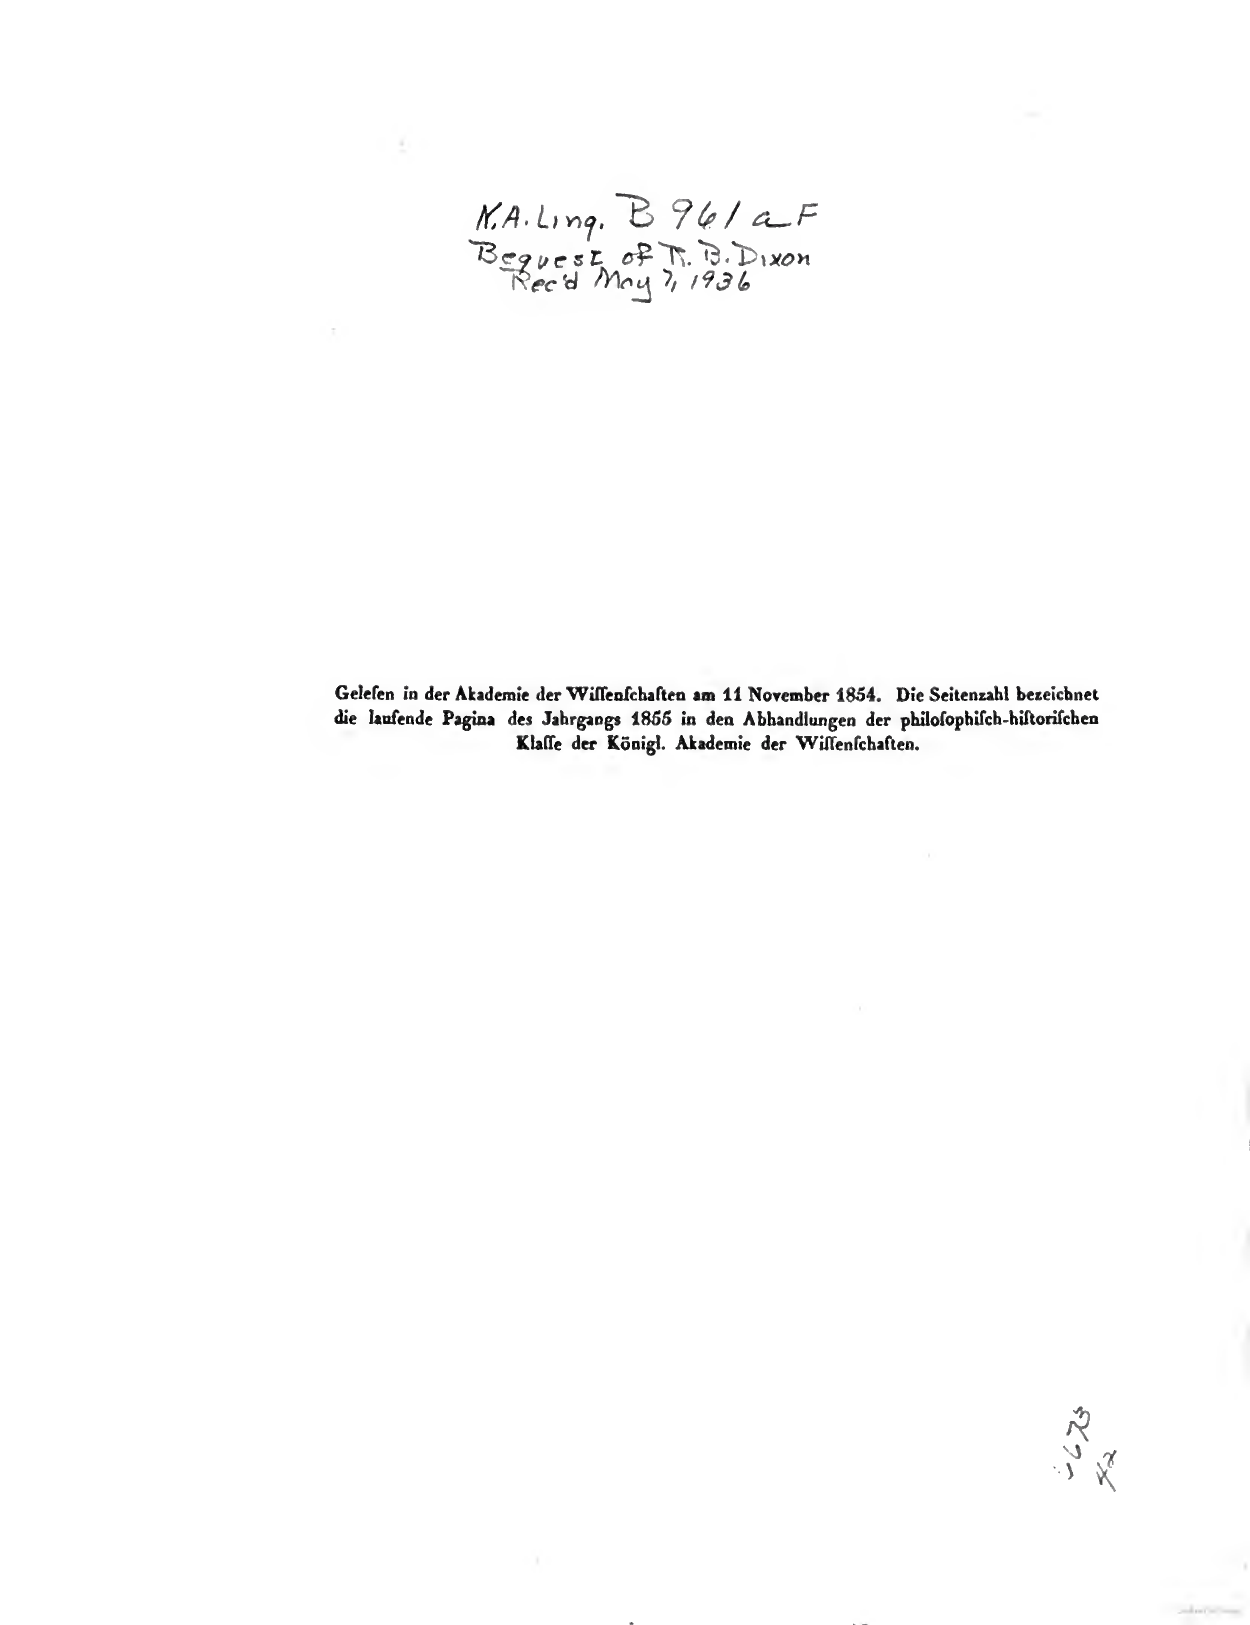 N.A. Ling. B 961 a F
Bequest of R. B. Dixon
Rec'd May 7, 1936
Geleſen in der Akademie der Wiſſenſchaften am 11 November 1854. Die Seitenzahl bezeichnet
die laufende Pagina des Jahrgangs 1855 in den Abhandlungen der philoſophiſch-hiſtoriſchen
Klaſſe der Königl. Akademie der Wiſſenſchaften.
42